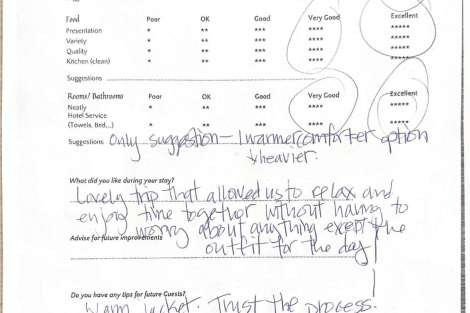 Food Poor OK Good Very Good Excellent
Presentation * ** *** **** *****
Variety * ** *** **** *****
Quality * ** *** **** *****
Kitchen (clean) * ** *** **** *****
Suggestions
Rooms/ Bathrooms Poor OK Good Very Good Excellent
Neatly * ** *** **** *****
Hotel Service
(Towels, Bed,...) * ** *** **** *****
Suggestions Only suggestion - 1 warmer comforter option
& heavier.
What did you like during your stay?
Lovely trip that allowed us to relax and
enjoy time together without having to
worry about anything except the
Advise for future improvements
outfit for the day!
Do you have any tips for future Guests?
Warm jacket. Trust the process.